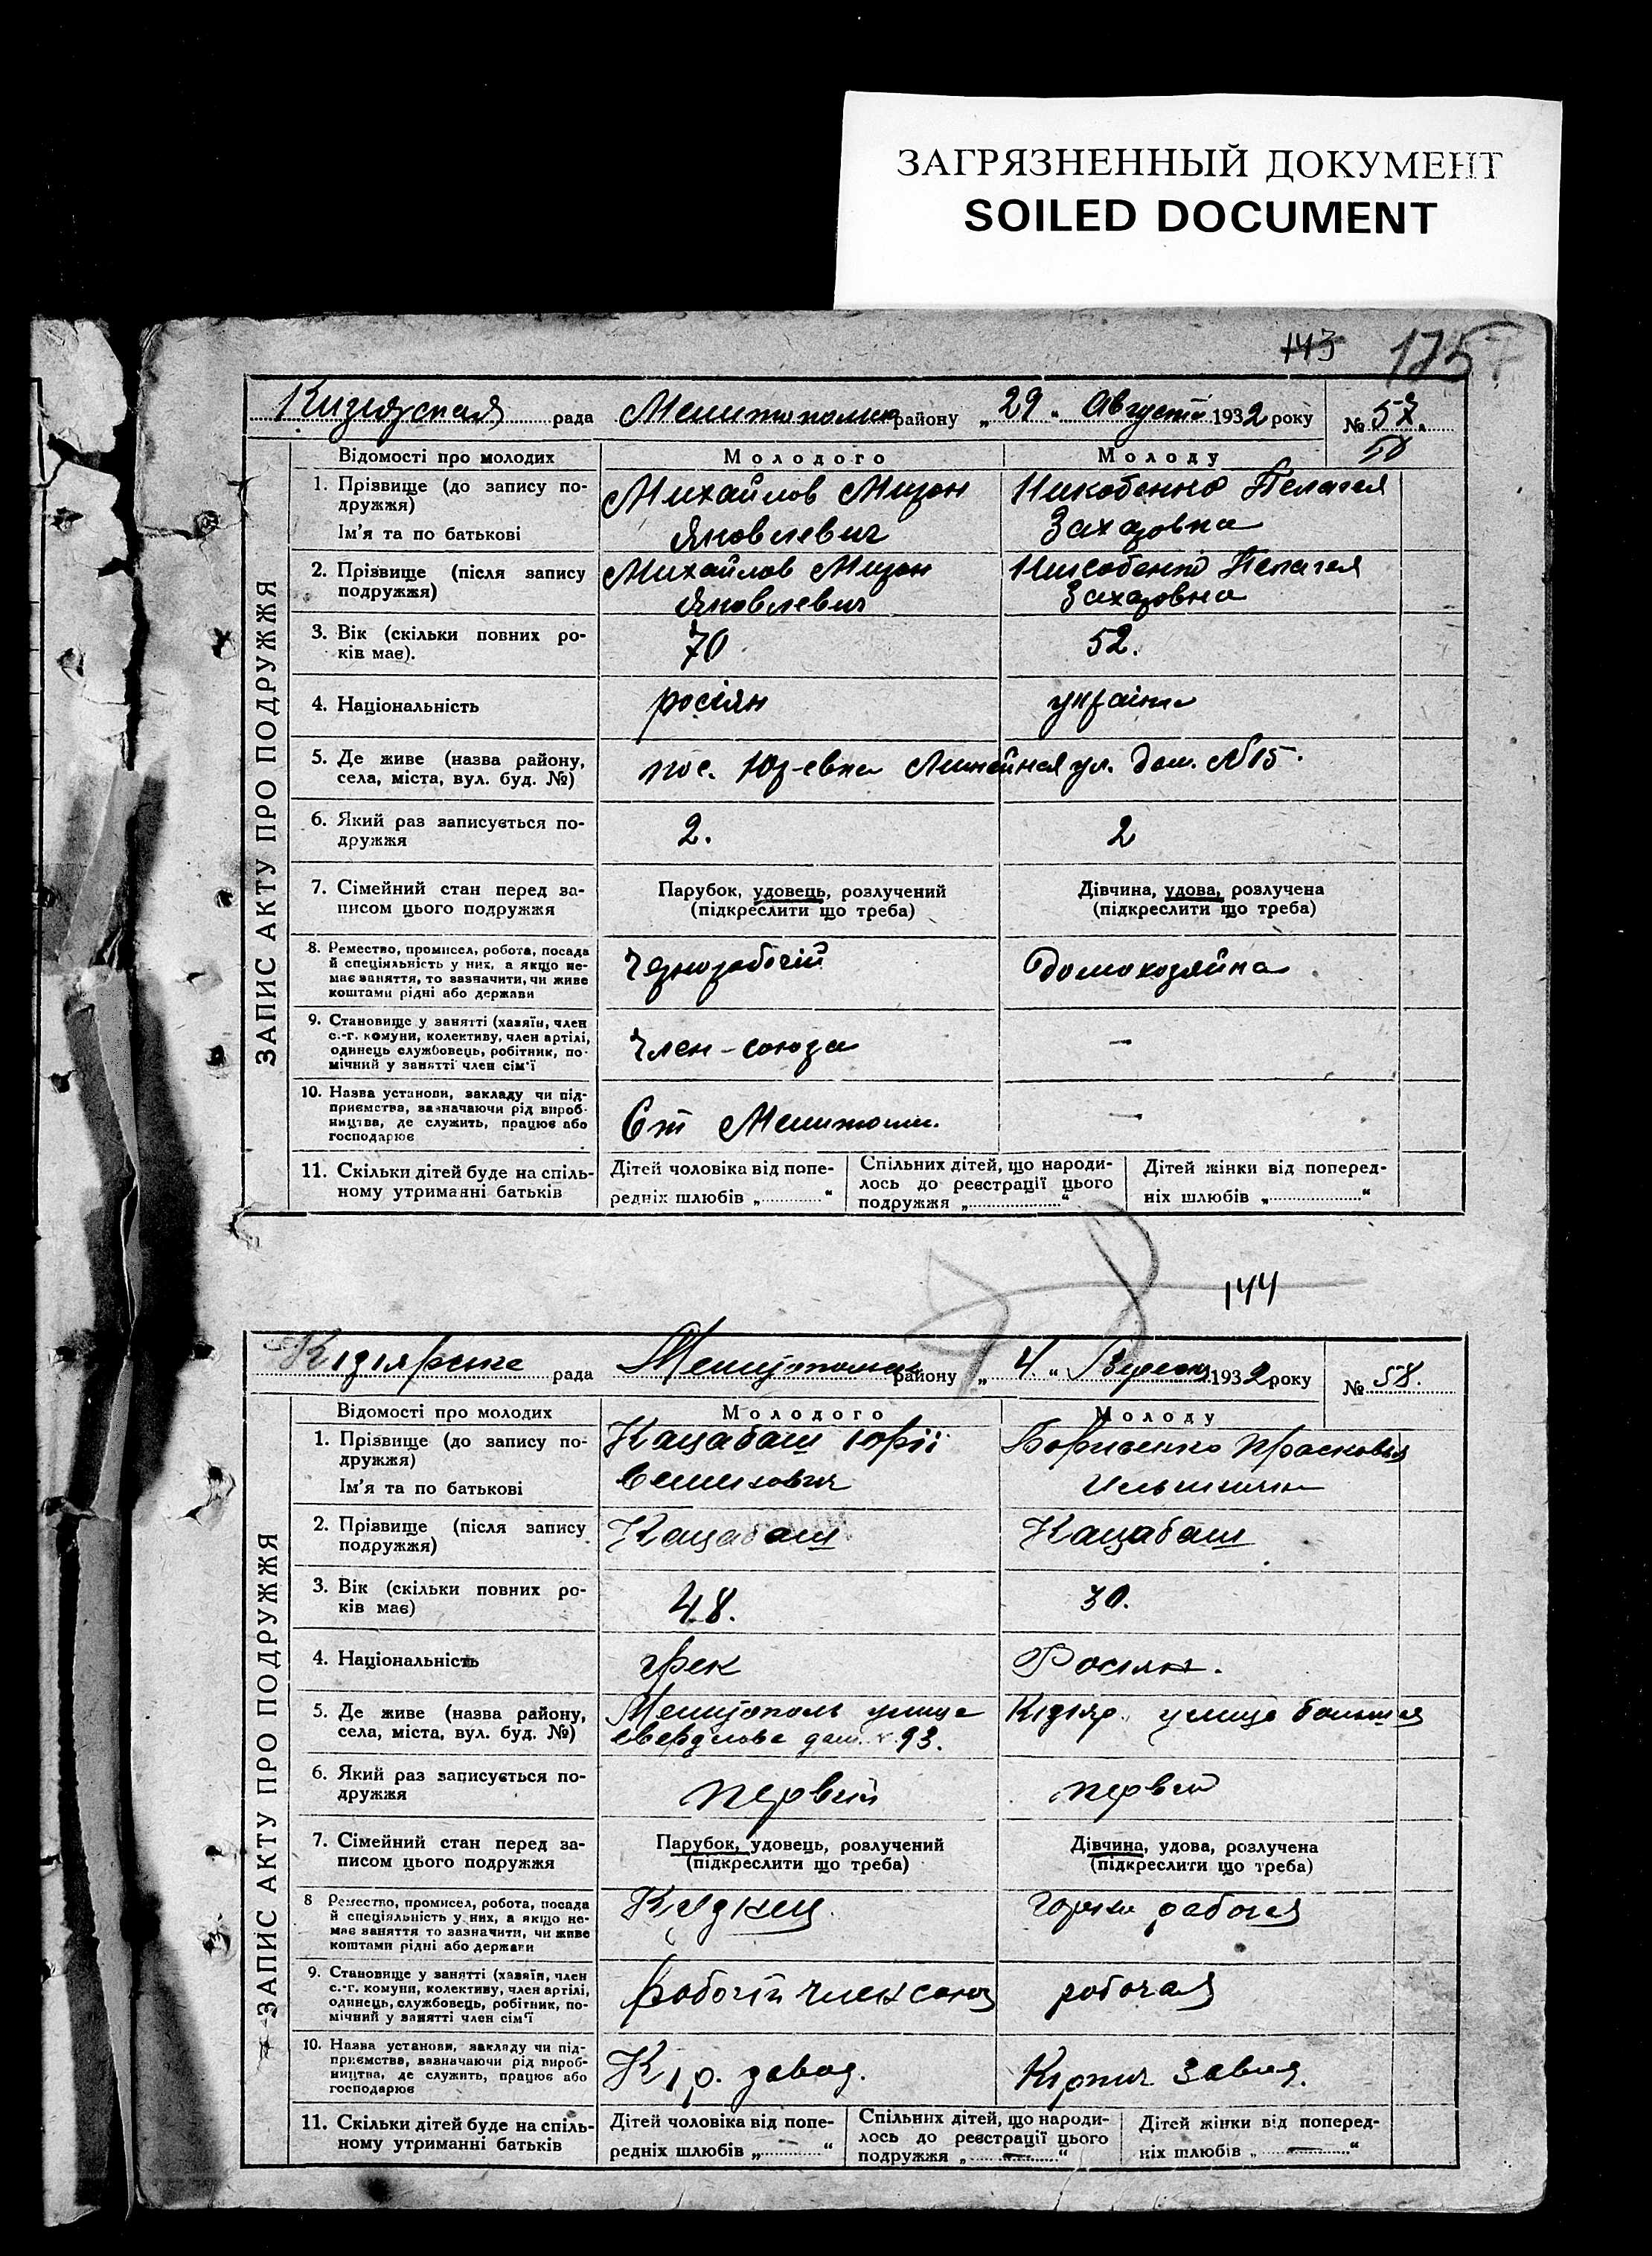 ЗАГРЯЗНЕННЫЙ ДОКУМЕНТ
SOILED DOCUMENT
143 175
Кизиярская рада Мелитопольск району „29“ Августа 1932 року № 57
58
ЗАПИС АКТУ ПРО ПОДРУЖЖЯ
Відомості про молодих Молодого Молоду
1. Прізвище (до запису по-
дружжя)
Ім'я та по батькові
Михайлов Мирон
Яковлевич
Пелагея
Захаровна
2. Прізвище (після запису
подружжя)
Михайлов Мирон
Яковлевич
Пелагея
Захаровна
3. Вік (скільки повних ро-
ків має).
70 52.
4. Національність росіян україн
5. Де живе (назва району,
села, міста, вул. буд. №)
пос. Юр-евка Линейная ул. дом. №15.
6. Який раз записується по-
дружжя
2. 2
7. Сімейний стан перед за-
писом цього подружжя
Парубок, удовець, розлучений
(підкреслити що треба)
Дівчина, удова, розлучена
(підкреслити що треба)
8. Ремество, промисел, робота, посада
й спеціяльність у них, а якщо не-
має заняття, то зазначити, чи живе
коштами рідні або держави
Чернорабочій домохозяйка
9. Становище у занятті (хазяїн, член
с.-г. комуни, колективу, член артілі,
одинець службовець, робітник, по-
мічний у занятті член сім'ї
Член-союза —
10. Назва установи, закладу чи під-
приємства, зазначаючи рід вироб-
ництва, де служить, працює або
господарює
Ст Мелитоп. —
11. Скільки дітей буде на спіль-
ному утриманні батьків
Дітей чоловіка від попе-
редніх шлюбів „............“
Спільних дітей, що народи-
лось до реєстрації цього
подружжя „............“
Дітей жінки від поперед-
ніх шлюбів „............“
144
Кізіярська рада Мелітопольск району „4“ Вересня 1932 року № 58.
ЗАПИС АКТУ ПРО ПОДРУЖЖЯ
Відомості про молодих Молодого Молоду
1. Прізвище (до запису по-
дружжя)
Ім'я та по батькові
Кацабаш Юрії
Семенович
Борисенко Прасковья
2. Прізвище (після запису
подружжя)
Кацабаш Кацабаш
3. Вік (скільки повних ро-
ків має)
48. 30.
4. Національність грек Росіян.
5. Де живе (назва району,
села, міста, вул. буд. №)
Мелітополь улица
Свердлова дом. № 93.
Кізіяр. улица большая
6. Який раз записується по-
дружжя
первий первий
7. Сімейний стан перед за-
писом цього подружжя
Парубок, удовець, розлучений
(підкреслити що треба)
Дівчина, удова, розлучена
(підкреслити що треба)
8 Ремество, промисел, робота, посада
й спеціяльність у них, а якщо не-
має заняття то зазначити, чи живе
коштами рідні або держави
рабочая
9. Становище у занятті (хазяїн, член
с.-г. комуни, колективу, член артілі,
одинець, службовець, робітник, по-
мічний у занятті член сім'ї
робочій член союза робочая
10. Назва установи, закладу чи під-
приємства, зазначаючи рід вироб-
ництва, де служить, працює або
господарює
Кір. завод. Кірпич завод.
11. Скільки дітей буде на спіль-
ному утриманні батьків
Дітей чоловіка від попе-
редніх шлюбів „—“
Спільних дітей, що народи-
лось до реєстрації цього
подружжя „—“
Дітей жінки від поперед-
ніх шлюбів „—“